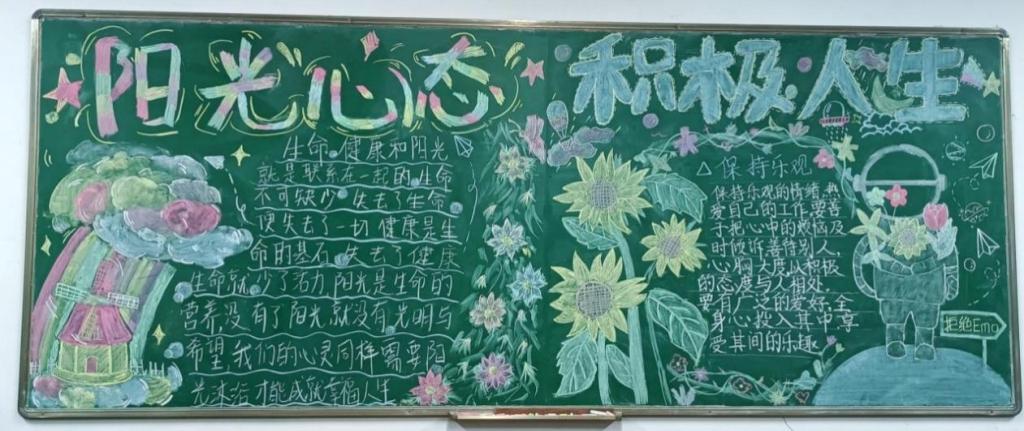 阳光心态
积极人生
生命、健康和阳光
就是联系在一起的生命
不可缺少、失去了生命
便失去了一切健康是生
命的基石、失去了健康
生命就少了活力阳光是生命的
营养没有了阳光就没有光明与
希望我们的心灵同样需要阳
光沐浴才能成就幸福人生
△保持乐观
保持乐观的情绪热
爱自己的工作要善
于把心中的烦恼及
时倾诉善待别人、
心胸大度以积极
的态度与人相处、
要有广泛的爱好、全
身心投入其中享
受其间的乐趣
拒绝Emo